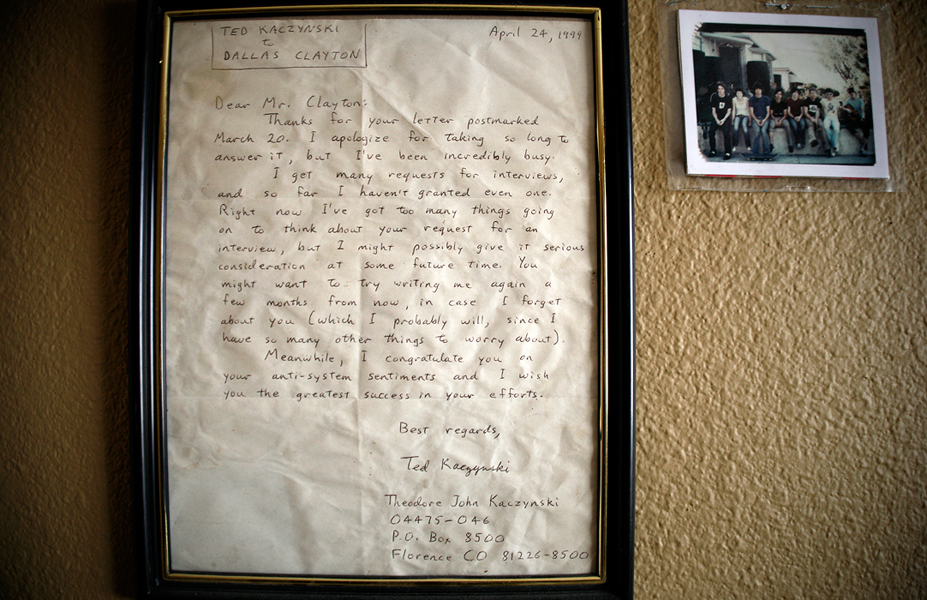 TED KACZYNSKI
to
DALLAS CLAYTON
April 24, 1999
Dear Mr. Clayton:
Thanks for your letter postmarked
March 20. I apologize for taking so long to
answer it, but I've been incredibly busy.
I get many requests for interviews,
and so far I haven't granted even one.
Right now I've got too many things going
on to think about your request for an
interview, but I might possibly give it serious
consideration at some future time. You
might want to try writing me again a
few months from now, in case I forget
about you (which I probably will, since I
have so many other things to worry about).
Meanwhile, I congratulate you on
your anti-system sentiments and I wish
you the greatest success in your efforts.
Best regards,
Ted Kaczynski
Theodore John Kaczynski
04475-046
P.O. Box 8500
Florence CO 81226-8500